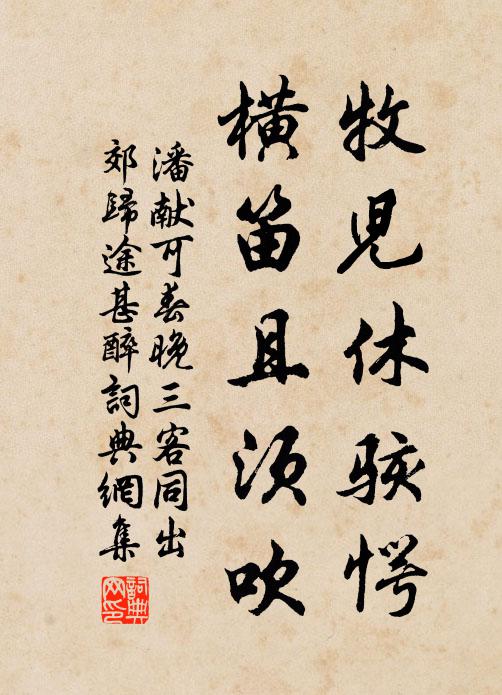 牧児休駭愕
横笛且須吹
潘献可春晚三客同出
郊歸途甚醉詞典網集
詞典網印